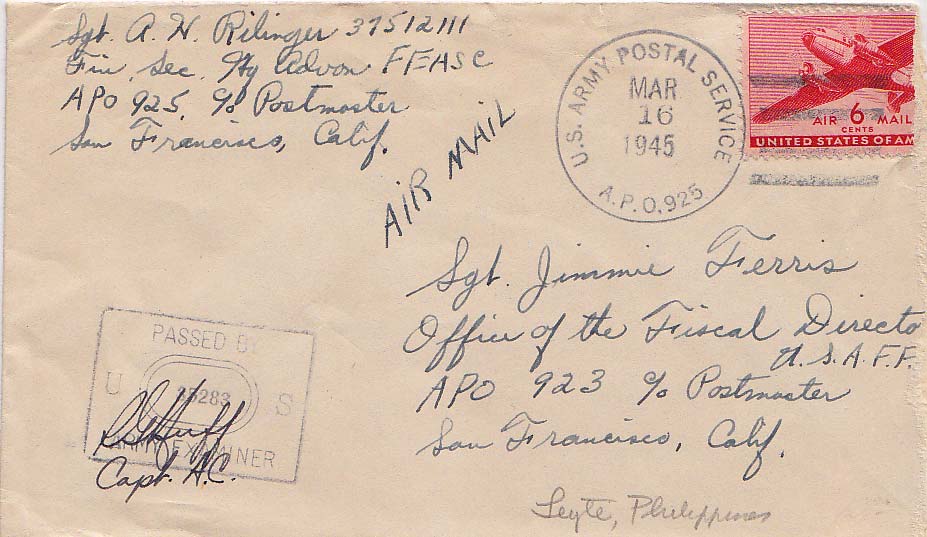 Sgt. A. H. Rilinger 37512111
Fin. Sec. Hq Advon FEASC
APO 925, c/o Postmaster
San Francisco, Calif.
AIR MAIL
U.S. ARMY POSTAL SERVICE
MAR
16
1945
A.P.O. 925
AIR 6 MAIL
CENTS
UNITED STATES OF AM
Sgt. Jimmie Ferris
Office of the Fiscal Directo
U.S.A.F.F.
APO 923 c/o Postmaster
San Francisco, Calif.
PASSED BY
U 35283 S
ARMY EXAMINER
Huff
Capt. A.C.
Leyte, Philippines